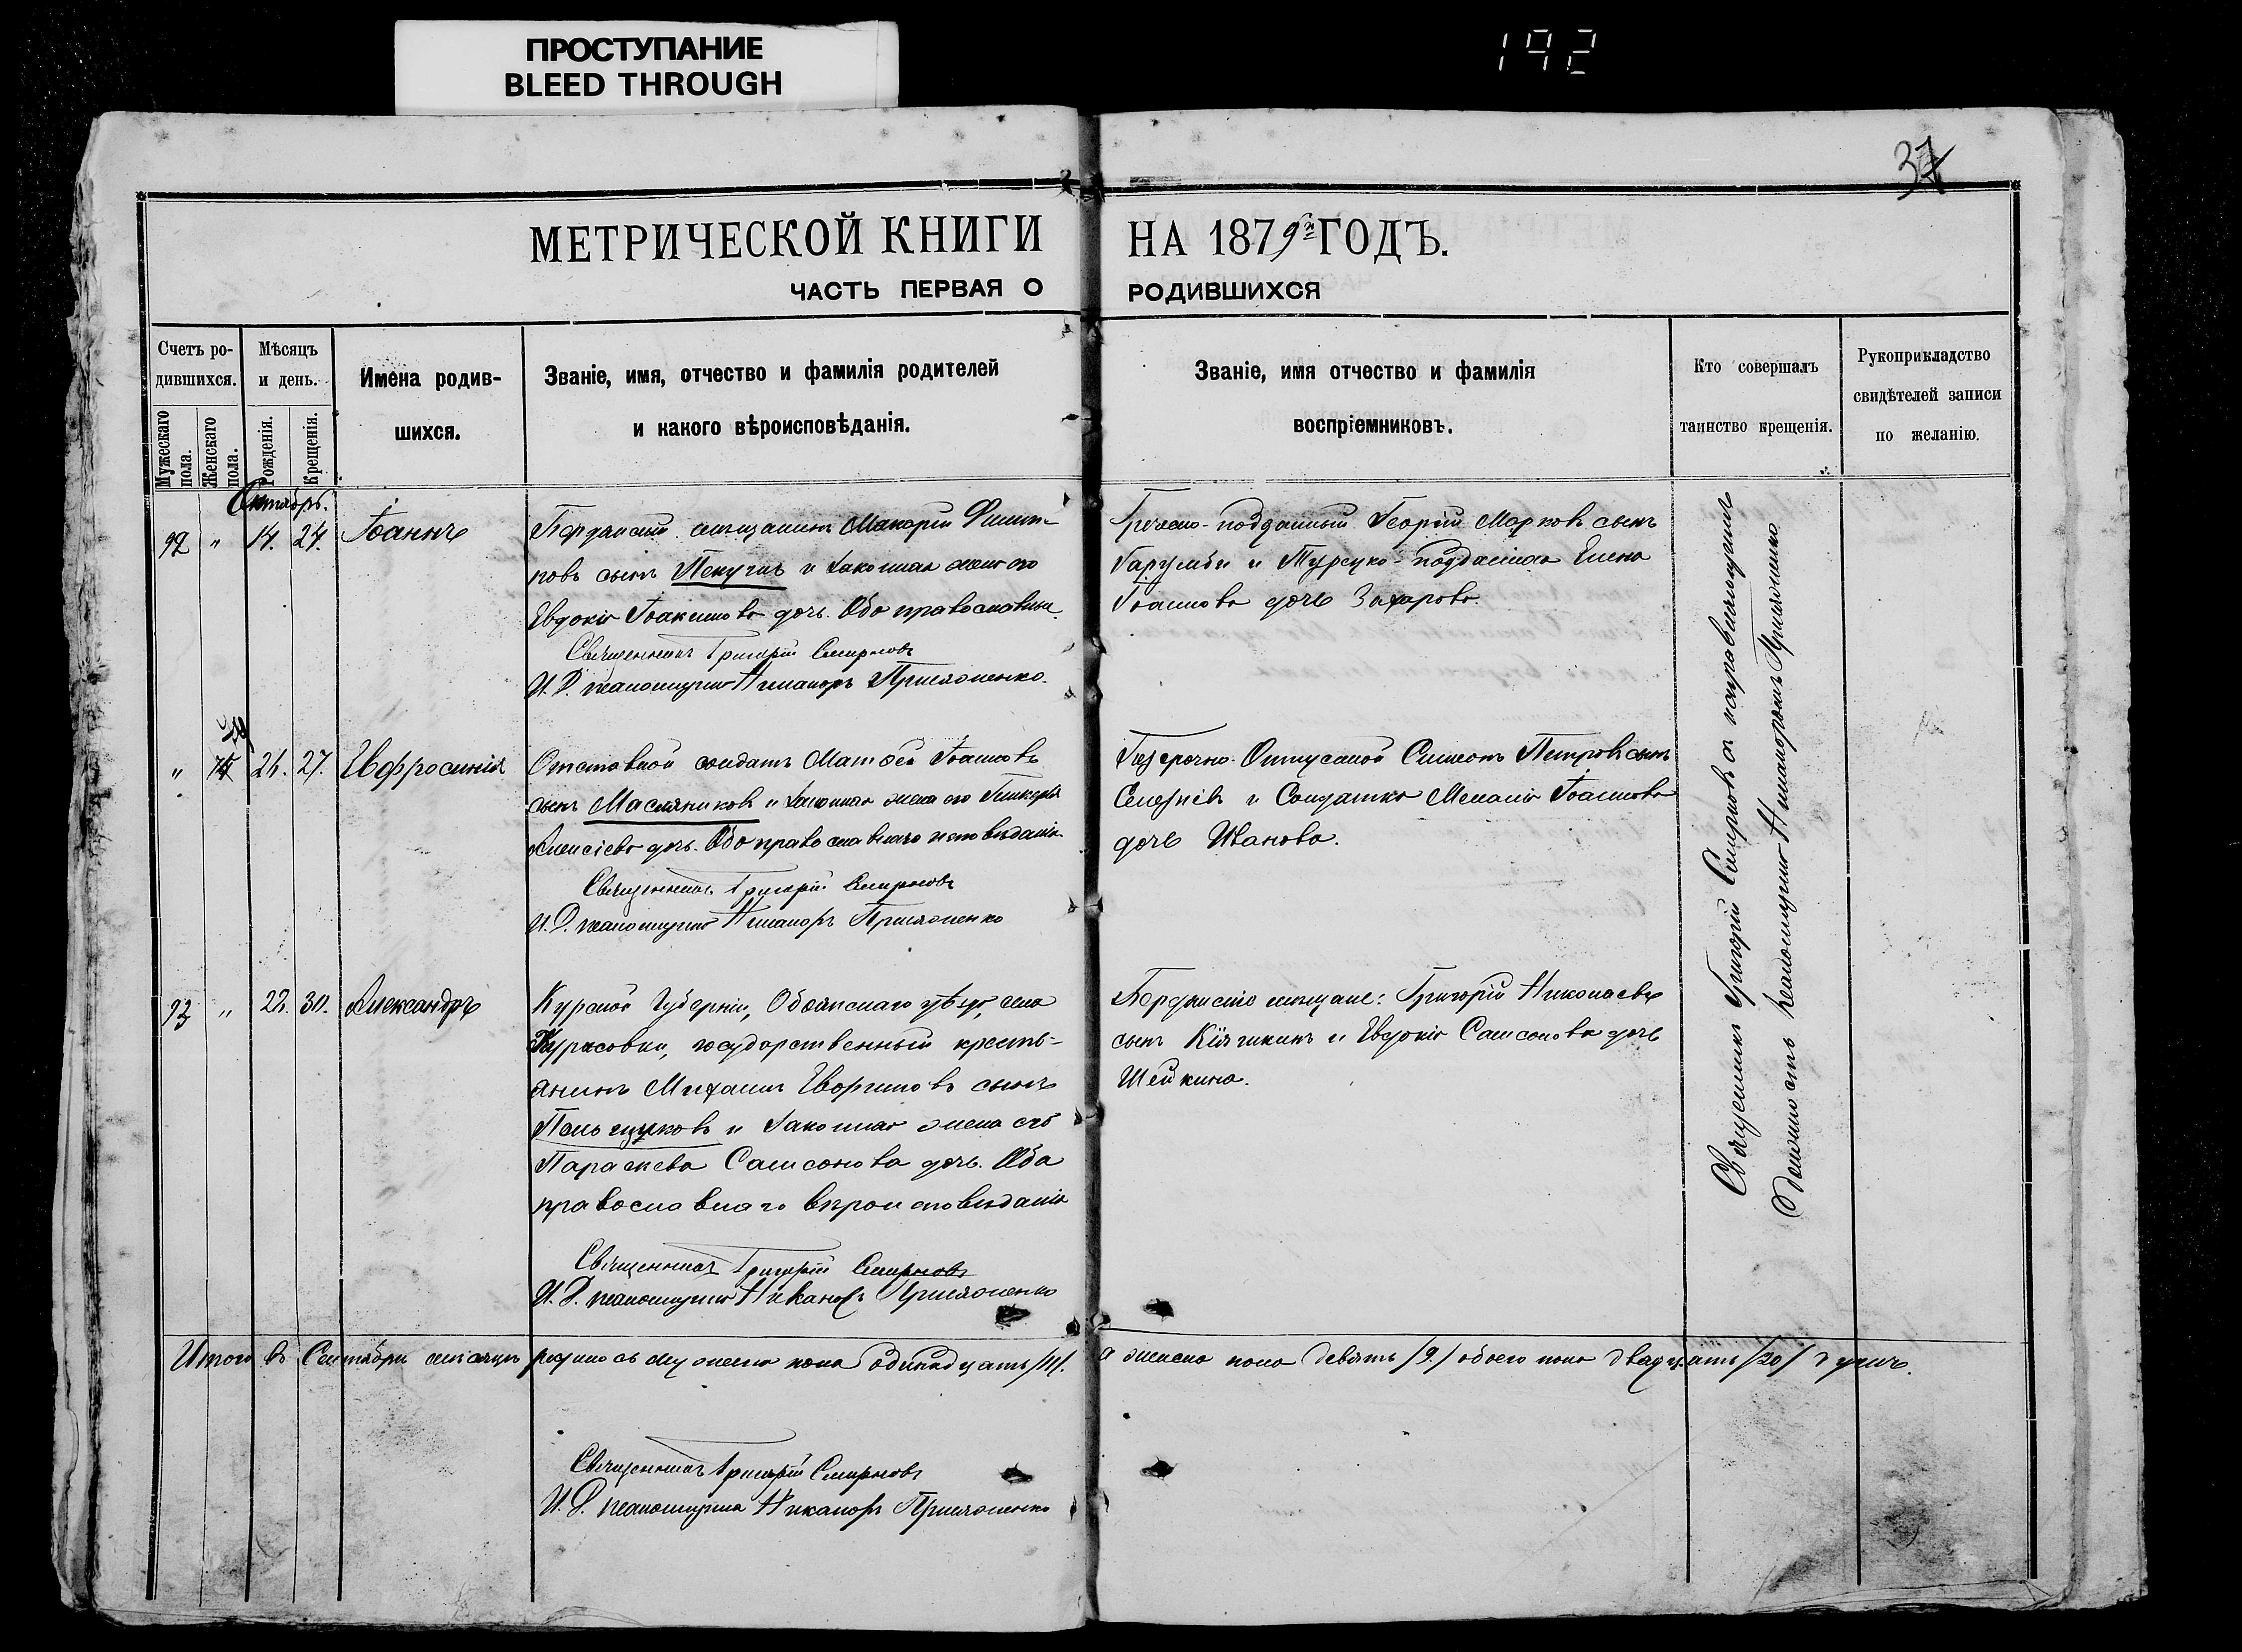 ПРОСТУПАНИЕ
BLEED THROUGH
192
37
МЕТРИЧЕСКОЙ КНИГИ НА 1879й ГОДЪ.
ЧАСТЬ ПЕРВАЯ О РОДИВШИХСЯ
Счетъ ро-
дившихся.
Мужескаго
пола.
Женскаго
пола.
Мѣсяцъ
и день.
Рожденія.
Крещенія.
Имена родив-
шихся.
Званіе, имя, отчество и фамилія родителей
и какого вѣроисповѣданія.
Званіе, имя отчество и фамилія
воспріемниковъ.
Кто совершалъ
таинство крещенія.
Рукоприкладство
свидѣтелей записи
по желанію.
Октябрь.
92 " 14. 24. Іоаннъ
Бердянскій мѣщанинъ Макарій Филип-
повъ сынъ и законная жена его
Евдокія Іоакимова дочь. Оба православные
Священникъ Григорій Смирновъ
И. Д. псаломщика Никаноръ
Греческо-подданный Георгій Марковъ сынъ
и Турецко-подданная Елена
Іоаннова дочь Захарова.
" 27. Евфросинія
Отставной солдатъ Матѳей Іоанновъ
сынъ Масляниковъ и законная жена его Гликерія
Алексіева дочь. Оба православнаго исповѣданія
Священникъ Григорій Смирновъ
И. Д. псаломщика Никаноръ
Безсрочно-Отпускной Симеонъ Петровъ сынъ
Селезнёвъ и Солдатка Меланія Іоаннова
дочь Иванова.
93 " 22. 30. Александръ
Курской Губерніи, Обоянскаго уѣзда, села
Курасовки, государственный кресть-
янинъ Михаилъ сынъ
и законная жена его
Параскева Самсонова дочь. Оба
православнаго вѣроисповѣданія
Священникъ Григорій Смирновъ
И. Д. псаломщика Никаноръ
Бердянскіе мѣщане: Григорій Николаевъ
сынъ и Евдокія Самсонова дочь
Шейкина.
Священникъ Григорій Смирновъ съ исправляющимъ
должность псаломщика Никаноромъ
Итого въ Сентябрѣ мѣсяцѣ родилось мужеска пола одинадцать /11/. а женска пола девять /9./ обоего пола двадцать /20/ душъ.
Священникъ Григорій Смирновъ
И. Д. псаломщика Никаноръ